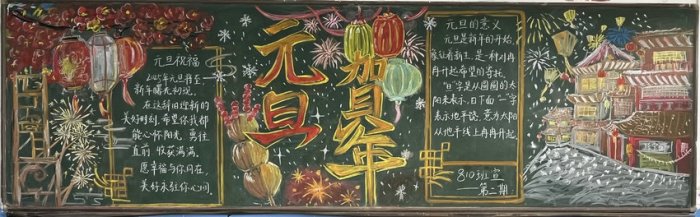 元旦祝福
2025年元旦将至
新年曙光初现,
在这辞旧迎新的
美好时刻,希望你我都
能心怀阳光,勇往
直前,收获满满。
愿幸福与你同在
美好永驻你心间。
元旦
贺年
元旦的意义
元旦是新年的开始,
象征着新生,是一种冉
冉升起希望的寄托。
"旦"字是从圆圆的太
阳来表示,日下面"一"字
表示地平线,意为太阳
从地平线上冉冉升起。
810班宣
——第二期